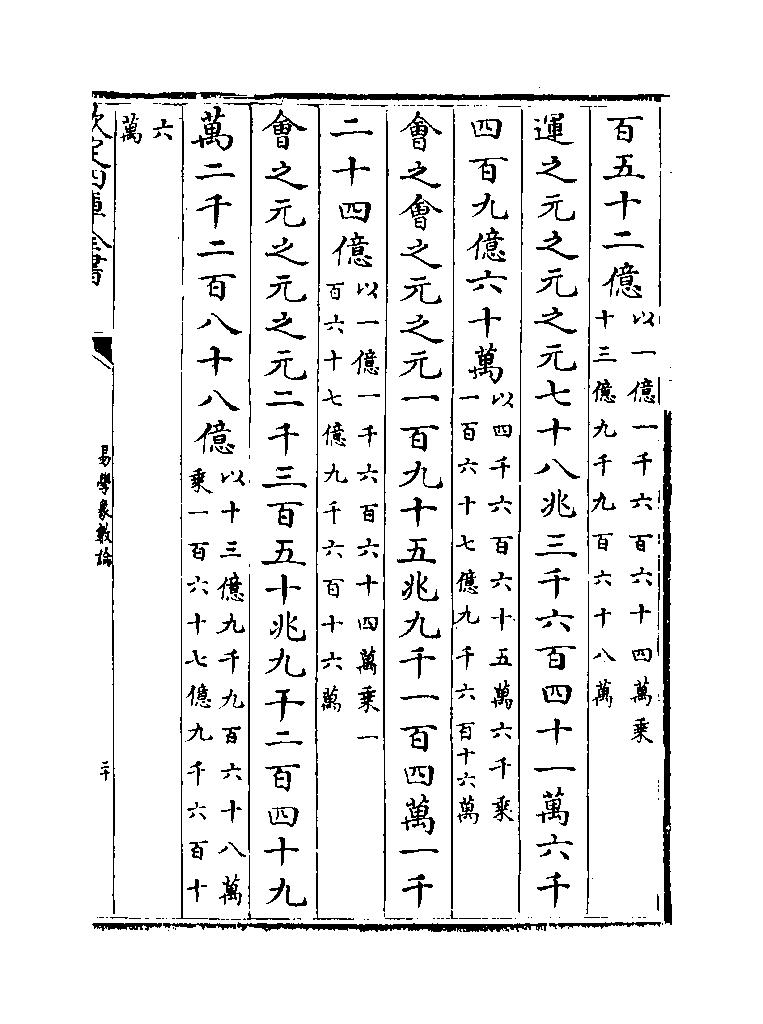 百五十二億以一億一千六百六十四萬乘十三億九千九百六十八萬
運之元之元之元七十八兆三千六百四十一萬六千
四百九億六十萬以四千六百六十五萬六千乘一百六十七億九千六百十六萬
會之會之元之元一百九十五兆九千一百四萬一千
二十四億以一億一千六百六十四萬乘一百六十七億九千六百十六萬
會之元之元之元二千三百五十兆九千二百四十九
萬二千二百八十八億以十三億九千九百六十八萬乘一百六十七億九千六百十
六萬
欽定四庫全書
易學象數論
二十